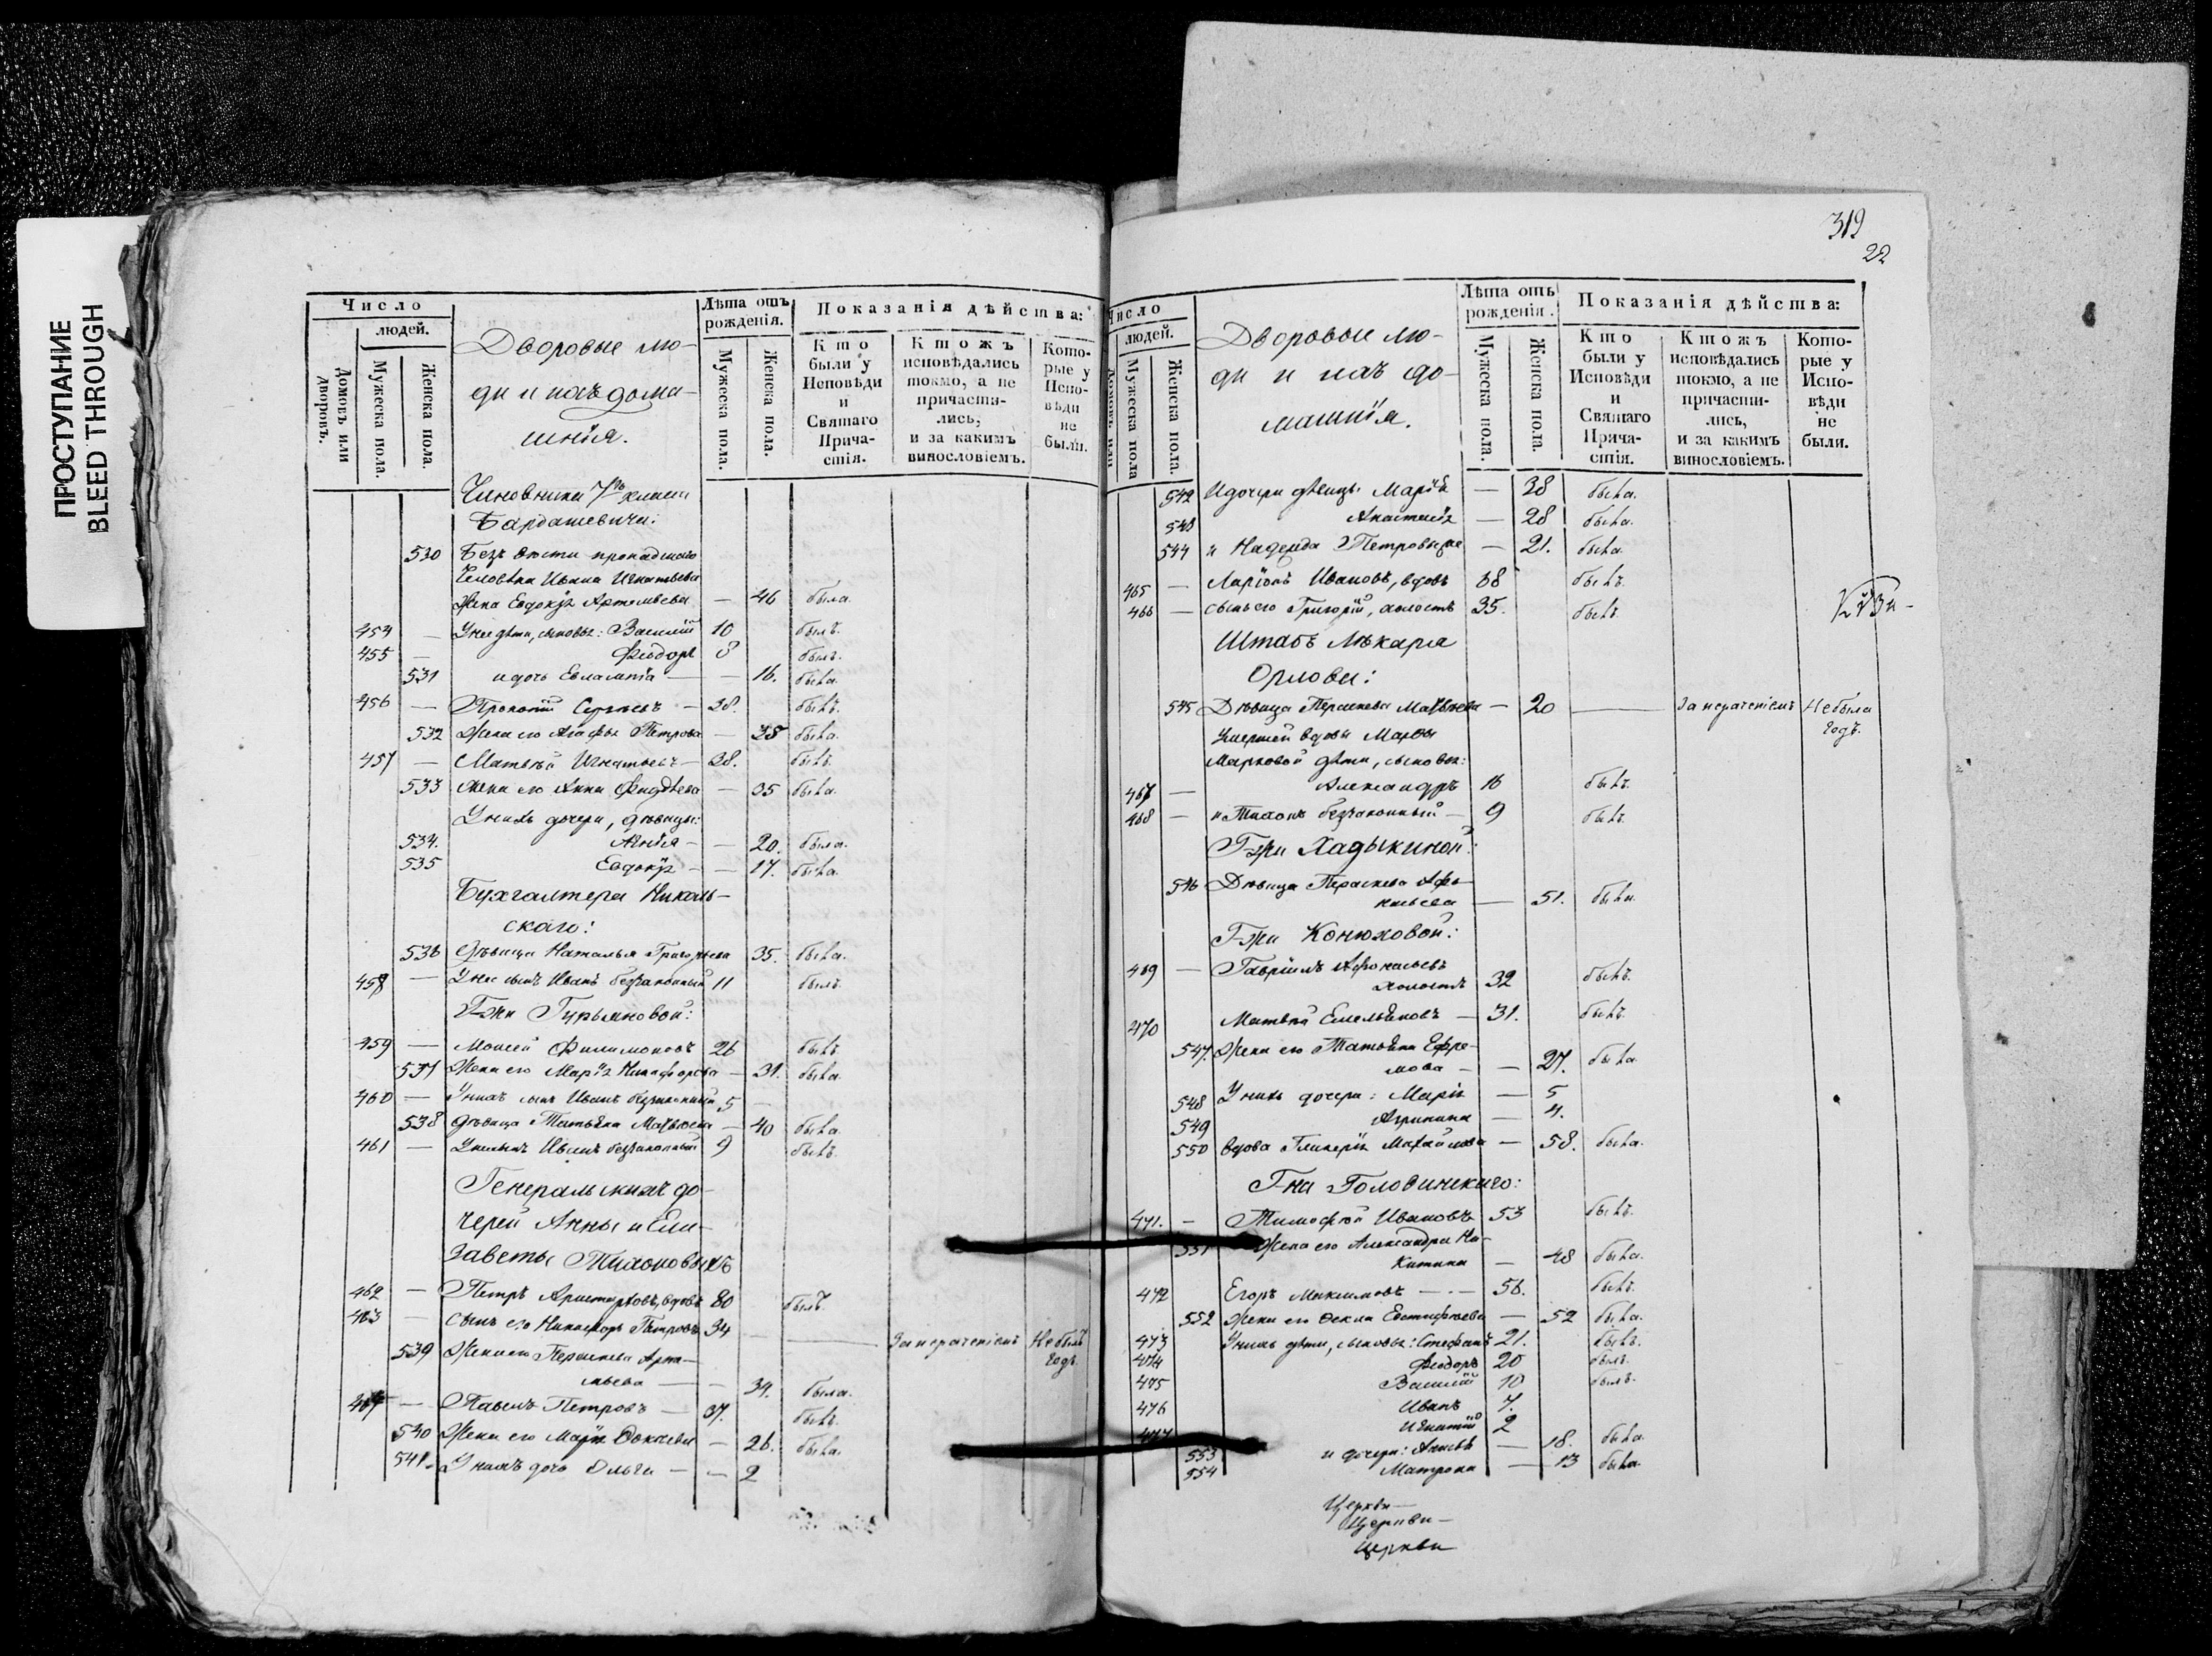 ПРОСТУПАНИЕ
BLEED THROUGH
Число
людей.
Домовъ или дворовъ.
Мужеска пола.
Женска пола.
Дворовые лю-
ди и ихъ дома-
шнія.
Лѣта отъ рожденія.
Мужеска пола.
Женска пола.
Показанія дѣйства:
Кто были у Исповѣди и Святаго Прича-стія.
Ктожъ исповѣдались токмо, а не причасти-лись, и за какимъ винословіемъ.
Кото-рые у Испо-вѣди не были.
Чиновника 7го класса
Бардашевича:
530 Безъ вѣсти пропадшаго
человѣка Ивана Игнатьева
жена Евдокія Артемьева — 46 была.
454 — У нее дѣти, сыновья: Василій 10 былъ.
455 — Феодоръ 8 былъ.
531 и дочь Евлампія — — 16. была.
456 — Прокопій Сергѣевъ — 38. былъ.
532 Жена его Агафья Петрова — 38 была.
457 — Матвѣй Игнатьевъ — 38. былъ.
533 жена его Анна Фадѣева — 35 была.
У нихъ дочери, дѣвицы:
534. Агнія — — 20. была.
535 Евдокія — — 17. была.
Бухгалтера Николь-
скаго:
536 Дѣвица Наталья Григорьева 35. была.
458 — У нее сынъ Иванъ беззаконный 11 былъ.
Г-жи Гурьяновой:
459 — Моисей Филимоновъ 26 былъ.
537 Жена его Марія Никифорова — 31. была.
460 — У нихъ сынъ Иванъ беззаконный 5 —
538 Дѣвица Татьяна Матвѣева — 40 была.
461 — У ней сынъ Иванъ беззаконный 9 былъ.
Генеральскихъ до-
черей Анны и Ели-
заветы Тихоновыхъ
462 — Петръ Аристарховъ, вдовъ 80 былъ.
463 — сынъ его Никифоръ Петровъ 34 — За нераченіемъ Не былъ
годъ.
539 Жена его Пераскева Арте-
мьева — — 34. была.
464 — Павелъ Петровъ — 37. былъ.
540 Жена его Марія — 26. была.
541. У нихъ дочь Ольга — — 2
319
22
Число
людей.
Домовъ или
Мужеска пола
Женска пола.
Дворовые лю-
ди и ихъ до-
машнія.
Лѣта отъ рожденія.
Мужеска пола.
Женска пола.
Показанія дѣйства:
Кто были у Исповѣди и Святаго Прича-стія.
Ктожъ исповѣдались токмо, а не причасти-лись, и за какимъ винословіемъ.
Кото-рые у Испо-вѣди не были.
542 И дочери дѣвицы Марія — 38 была.
543 Анастасія — 28 была.
544 и Надежда Петровы — 21. была.
465 — Ларіонъ Ивановъ, вдовъ 38 былъ.
466 — сынъ его Григорій, холостъ 35. былъ.
Штабъ Лѣкаря
Орлова:
545 Дѣвица Пераскева Матвѣева — 20 — За нераченіемъ Не была
годъ.
Умершей вдовы Марфы
Марковой дѣти, сыновья:
467 — Александръ 16 былъ.
468 — и Тихонъ беззаконный — 9 былъ.
Г-жи Хадыкиной:
546 Дѣвица Пераскева Афа-
насьева — 51. была.
Г-жи Конюховой:
469 — Гавріилъ Афонасьевъ
холостъ 32 былъ.
470 Матвѣй Емельяновъ — 31. былъ.
547. Жена его Татьяна Ефре-
мова — — 27. была.
548 У нихъ дочери: Марія — 5
549 Агрипина — 4.
550 Вдова Гликерія Михайлова — 58. была.
Г-на Головинскаго:
471. — Тимофѣй Ивановъ 53 былъ.
551 Жена его Александра Ни-
китина — 48 была.
472 Егоръ Максимовъ — — 56. былъ.
552 Жена его Фекла Евстифѣева — 52 была.
473 У нихъ дѣти, сыновья: Стефанъ 21. былъ.
474 Феодоръ 20 былъ.
475 Василій 10 былъ.
476 Иванъ 7.
477 Игнатій 2
553 и дочери: — 18. была.
554 Матрона — 13 была.
Церкви—
Церкви—
Церкви